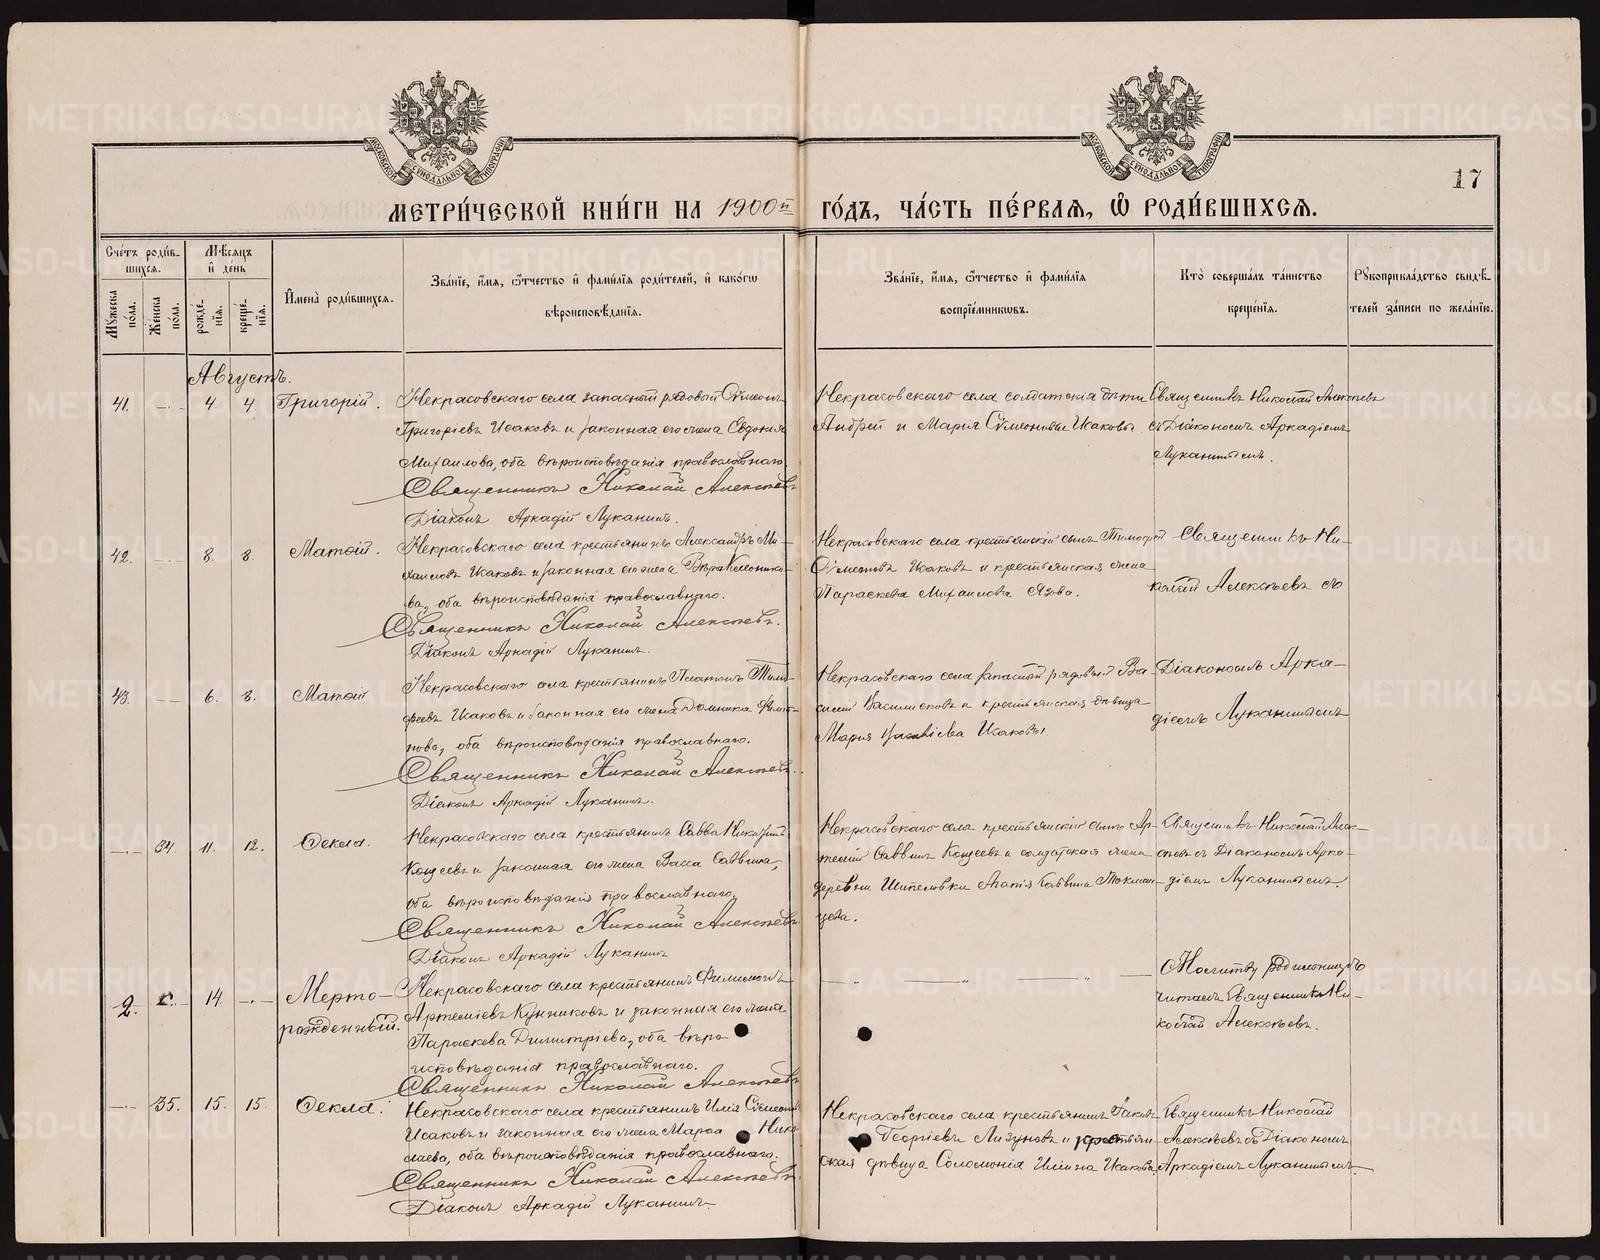 МОСКОВСКОЙ СѴНОДАЛЬНОЙ ТИПОГРАФІИ
МОСКОВСКОЙ СѴНОДАЛЬНОЙ ТИПОГРАФІИ
17
МЕТРИ́ЧЕСКОЙ КНИ́ГИ НА 1900й ГО́ДЪ, ЧА́СТЬ ПЕ́РВАѦ, Ѽ РОДИ́ВШИХСѦ.
Сче́тъ роди́в-
шихсѧ.
Мѣ́сѧцъ
и҆ де́нь
И҆мена̀ роди́вшихсѧ.
Зва́нїе, и҆́мѧ, ѻ҆́тчество и҆ фами́лїѧ роди́телей, и҆ како́гѡ
вѣроисповѣ́данїѧ.
Зва́нїе, и҆́мѧ, ѻ҆́тчество и҆ фами́лїѧ
воспрїе́мникѡвъ.
Кто̀ соверша́лъ та́инство
креще́нїѧ.
Рꙋкоприкла́дство свидѣ́-
телей за́писи по жела́нїю.
Мꙋ́жеска
по́ла.
Же́нска
по́ла.
рожде́-
нїѧ.
креще́-
нїѧ.
Августъ.
41. 4. 4. Григорій.
Некрасовскаго села запасный рядовый Сѵмеонъ
Григоріевъ Исаковъ и законная его жена Евдокия
Михаилова, оба вѣроисповѣданія православнаго.
Священникъ Николай Алексѣевъ
Діаконъ Аркадій Луканинъ.
Некрасовскаго села солдатскія дѣти
Андрей и Марія Сѵмеоновы Исаковы
Священникъ Николай Алексѣевъ
съ Діакономъ Аркадіемъ
Луканинымъ.
42. 8. 8. Матѳій.
Некрасовскаго села крестьянинъ Александръ Ми-
хаиловъ Исаковъ и законная его жена Вѣра
ва, оба вѣроисповѣданія православнаго.
Священникъ Николай Алексѣевъ.
Діаконъ Аркадій Луканинъ.
Некрасовскаго села крестьянскій сынъ Тимофей
Сѵмеоновъ Исаковъ и крестьянская жена
Параскева Михаилова Язова.
Священникъ Ни-
колай Алексѣевъ съ
43. 6. 8. Матѳій
Некрасовскаго села крестьянинъ Платонъ Тимо-
феевъ Исаковъ и законная его жена Домника Филип-
пова, оба вѣроисповѣданія православнаго.
Священникъ Николай Алексѣевъ.
Діаконъ Аркадій Луканинъ.
Некрасовскаго села запасный рядовый Ва-
силій Васильевъ и крестьянская дѣвица
Марія Исаковы.
Діакономъ Арка-
діемъ Луканинымъ
34. 11. 12. Ѳекла.
Некрасовскаго села крестьянинъ Савва
и законная его жена Васса Саввина,
оба вѣроисповѣданія православнаго.
Священникъ Николай Алексѣевъ
Діаконъ Аркадій Луканинъ
Некрасовскаго села крестьянскій сынъ Ар-
темій Саввинъ и солдатская жена
деревни Шипеловки Агапія Саввина Токман-
цева.
Священникъ Николай Алек-
сѣевъ съ Діакономъ Арка-
діемъ Луканинымъ.
2. 14. Мертво-
рожденный.
Некрасовскаго села крестьянинъ Филимонъ
Артеміевъ Кунниковъ и законная его жена
Параскева Димитріева, оба вѣро-
исповѣданія православнаго.
Священникъ Николай Алексѣевъ
Молитву родильницѣ
читалъ Священникъ Ни-
колай Алексѣевъ.
35. 15. 15. Ѳекла.
Некрасовскаго села крестьянинъ Илія Сѵмеоновъ
Исаковъ и законная его жена Марѳа Нико-
лаева, оба вѣроисповѣданія православнаго.
Священникъ Николай Алексѣевъ.
Діаконъ Аркадій Луканинъ.
Некрасовскаго села крестьянинъ Іаковъ
Георгіевъ Лизуновъ и крестьян-
ская дѣвица Соломонія Иліина Исакова.
Священникъ Николай
Алексѣевъ съ Діакономъ
Аркадіемъ Луканинымъ.
METRIKI.GASO-URAL.RU